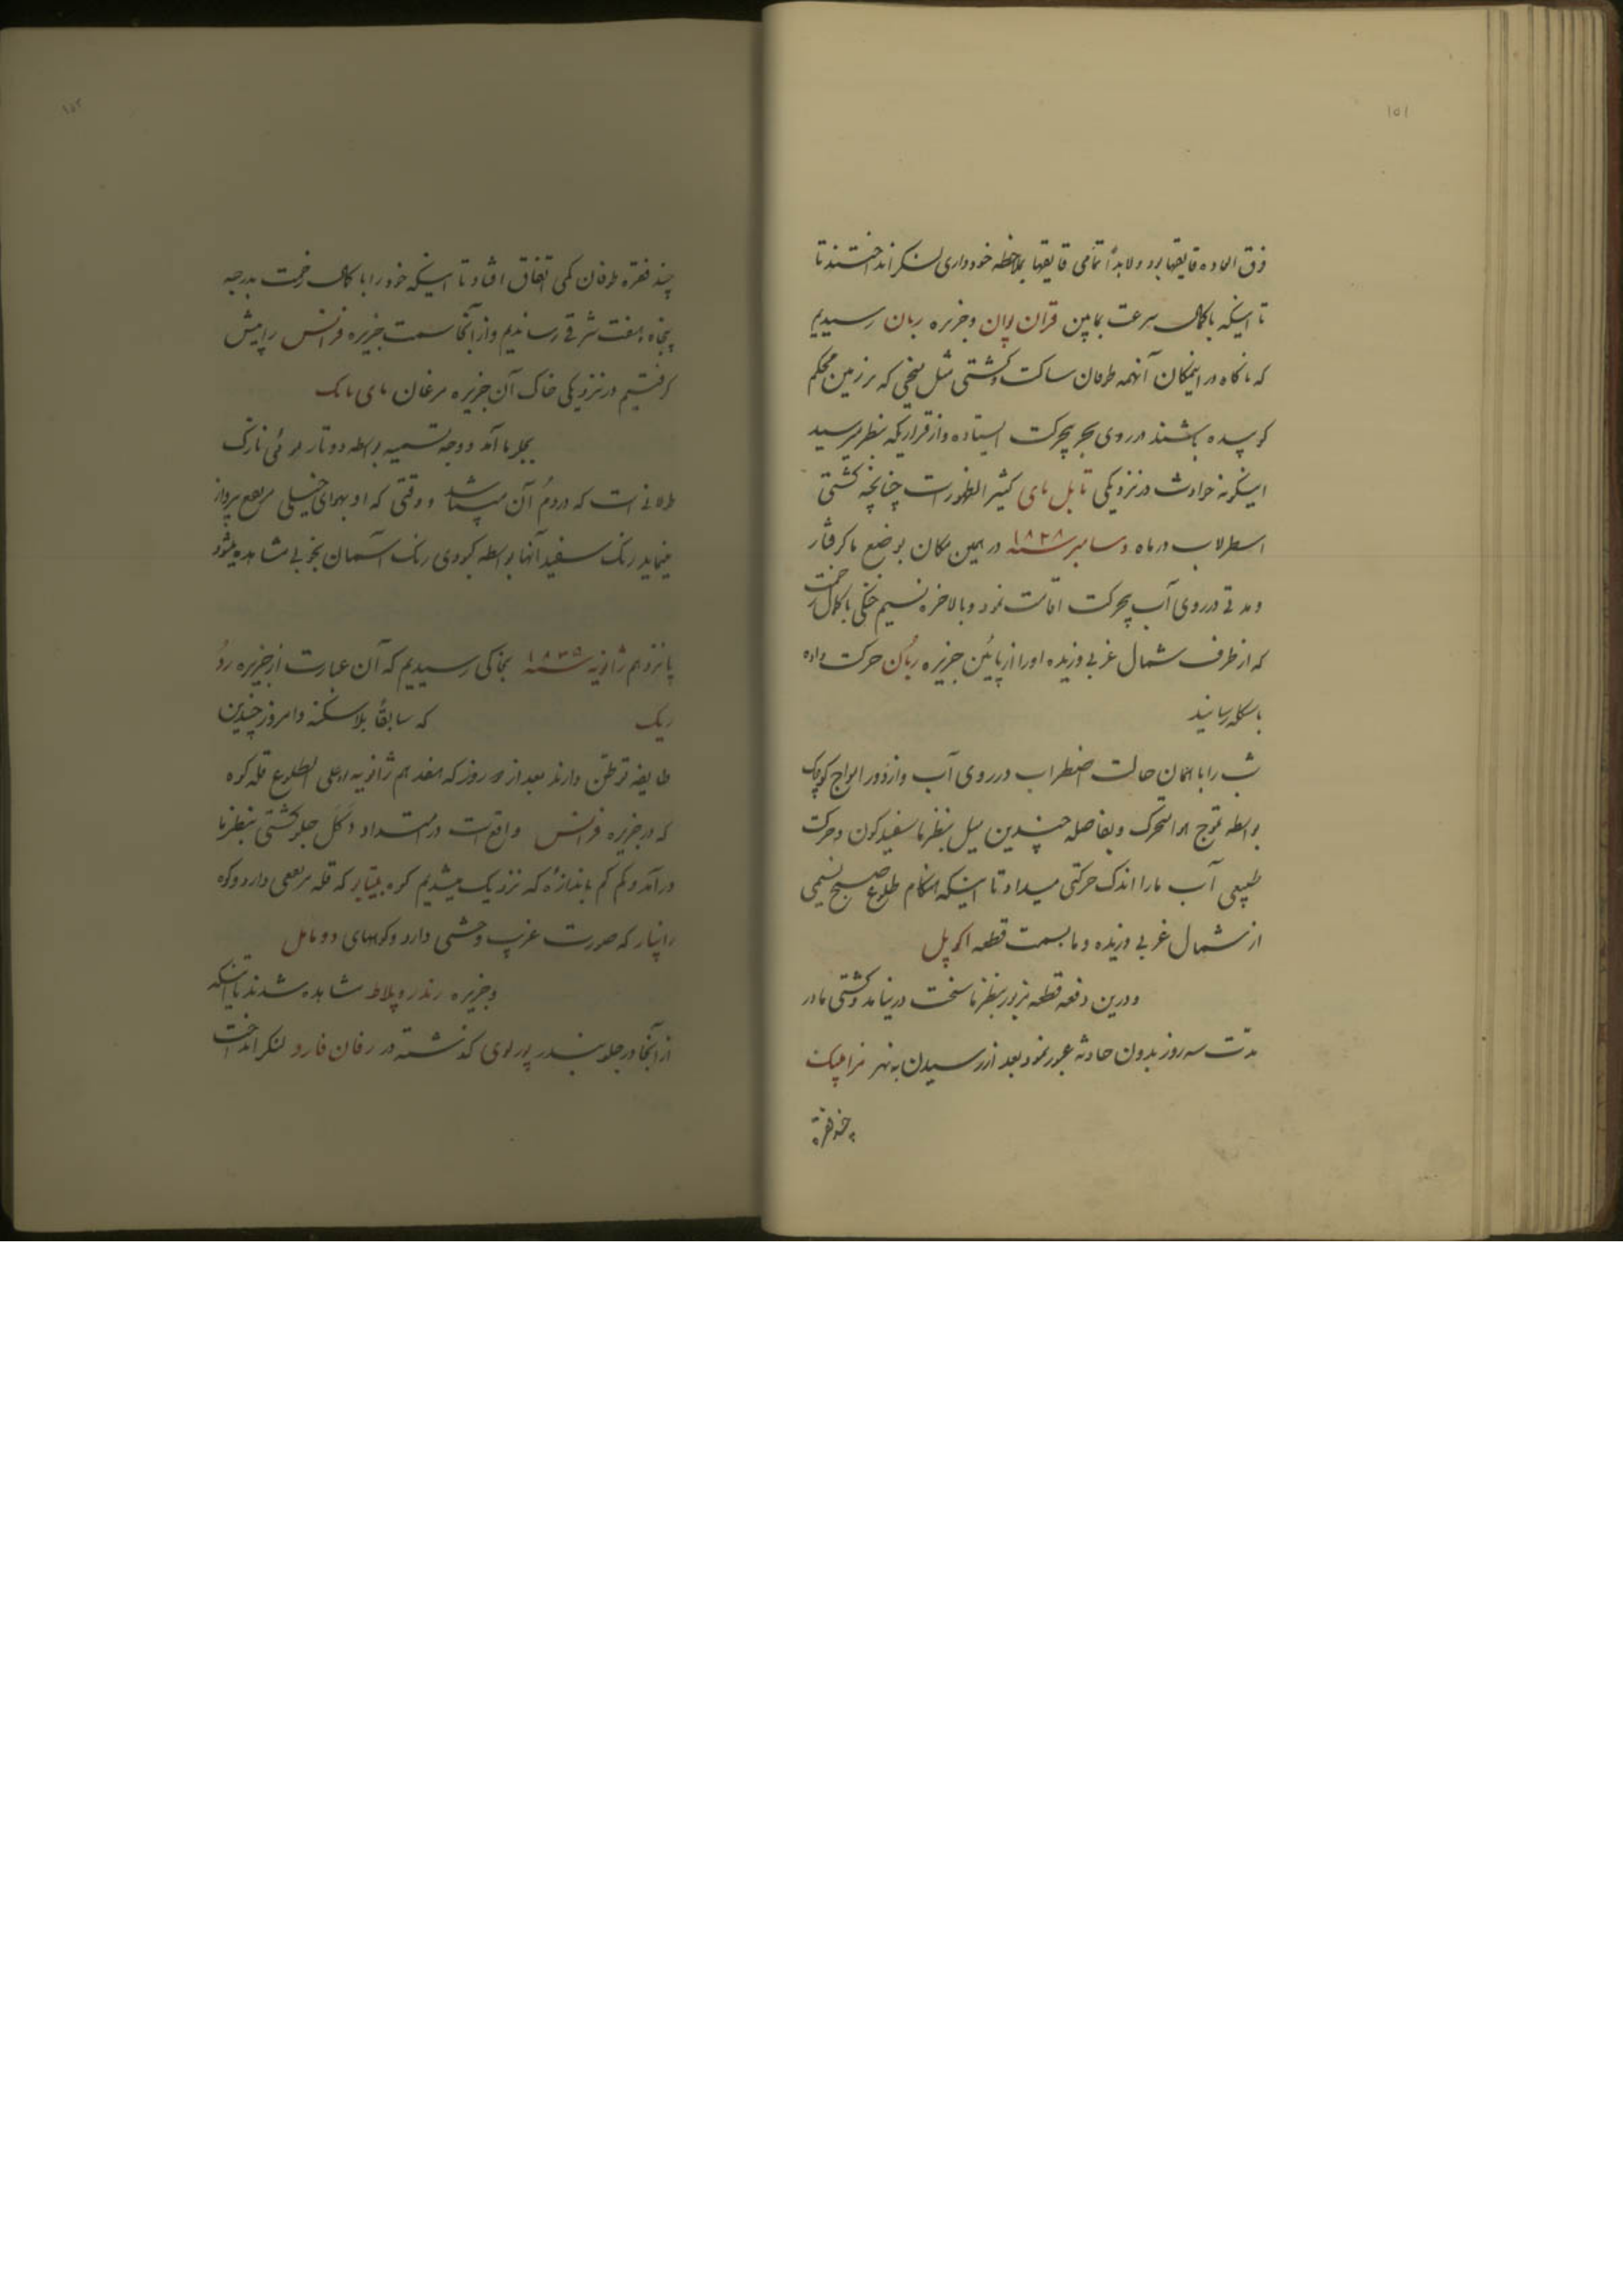 ۱۵۱
فوق العاده قایقها بود و لابداً تمامی قایقها بملاحظه خودداری لنکر انداختند تا
تا اینکه باکمال سرعت بمابین قران پوان و جزیره ربان رسیدیم
که ناکاه در اینمکان آنهمه طوفان ساکت و کشتی مثل میخی که بر زمین محکم
کوبیده باشند در روی بحر بیحرکت ایستاده و از قراریکه بنظر میرسید
اینکونه حوادث در نزدیکی تابل بای کثیر الظهور است چنانچه کشتی
اسطرلاب در ماه دسامبر سنه ۱۸۲۸ در همین مکان بوضع ما کرفتار
و مدتی در روی آب بیحرکت اقامت نمود و بالاخره نسیم خنکی باکمال زحمت
که از طرف شمال غربی وزیده او را از پائین جزیره ربان حرکت داده
باسکله رسانید
شب را با همان حالت اضطراب در روی آب و از دور امواج کوچک
بواسطه تموج هوا متحرک و بفاصله چندین میل بنظر ما سفید کون و حرکت
طبیعی آب ما را اندک حرکتی میداد تا اینکه هنکام طلوع صبح نسیمی
از شمال غربی وزیده و ما بسمت قطعه اکوپل
و درین دفعه قطعه مزبور بنظر ما سخت در نیامد و کشتی ما در
مدت سه روز بدون حادثه عبور نمود بعد از رسیدن به نهر مزامبیک
چند فقره
۱۵۲
چند فقره طوفان کمی اتفاق افتاد تا اینکه خود را با کمال زحمت بدرجه
پنجاه و هفت شرقی رساندیم و از آنجا سمت جزیره فرانس را پیش
کرفتیم در نزدیکی خاک آن جزیره مرغان پای پاک
بجلو ما آمد و وجه تسمیه بواسطه دو تار موئی نازک
طولانیست که در دم آن میباشد و وقتی که او بهوای خیلی مرتفع پرواز
مینماید رنک سفید آنها بواسطه کبودی رنک آسمان بخوبی مشاهده میشود
پانزدهم ژانویه سنه ۱۸۳۵ بخاکی رسیدیم که آن عبارت از جزیره رود
ریک که سابقاً بلا سکنه و امروز چندین
طایفه توطن دارند بعد از دو روز که هفدهم ژانویه بود علی الطلوع قله کوه
که در جزیره فرانس واقع است در امتداد دکل جلو کشتی بنظر ما
در آمد و کم کم باندازهٔ که نزدیک میشدیم کوه پیتابر که قله مرتفعی دارد و کوه
رامپار که صورت غریب وحشی دارد و کوههای دو مامل
و جزیره رندر و پلاط مشاهده شدند تا اینکه
از آنجا در جلو بندر پورلوی کذشته در رفان فارو لنکر انداخت